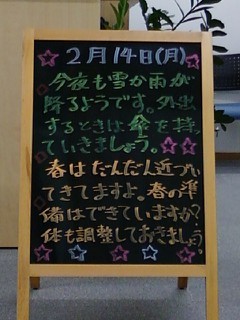 2月14日(月)
今夜も雪か雨が
降るようです。外出
するときは傘を持っ
ていきましょう。
春はだんだん近づい
てきてますよ。春の準
備はできていますか?
体も調整しておきましょう。